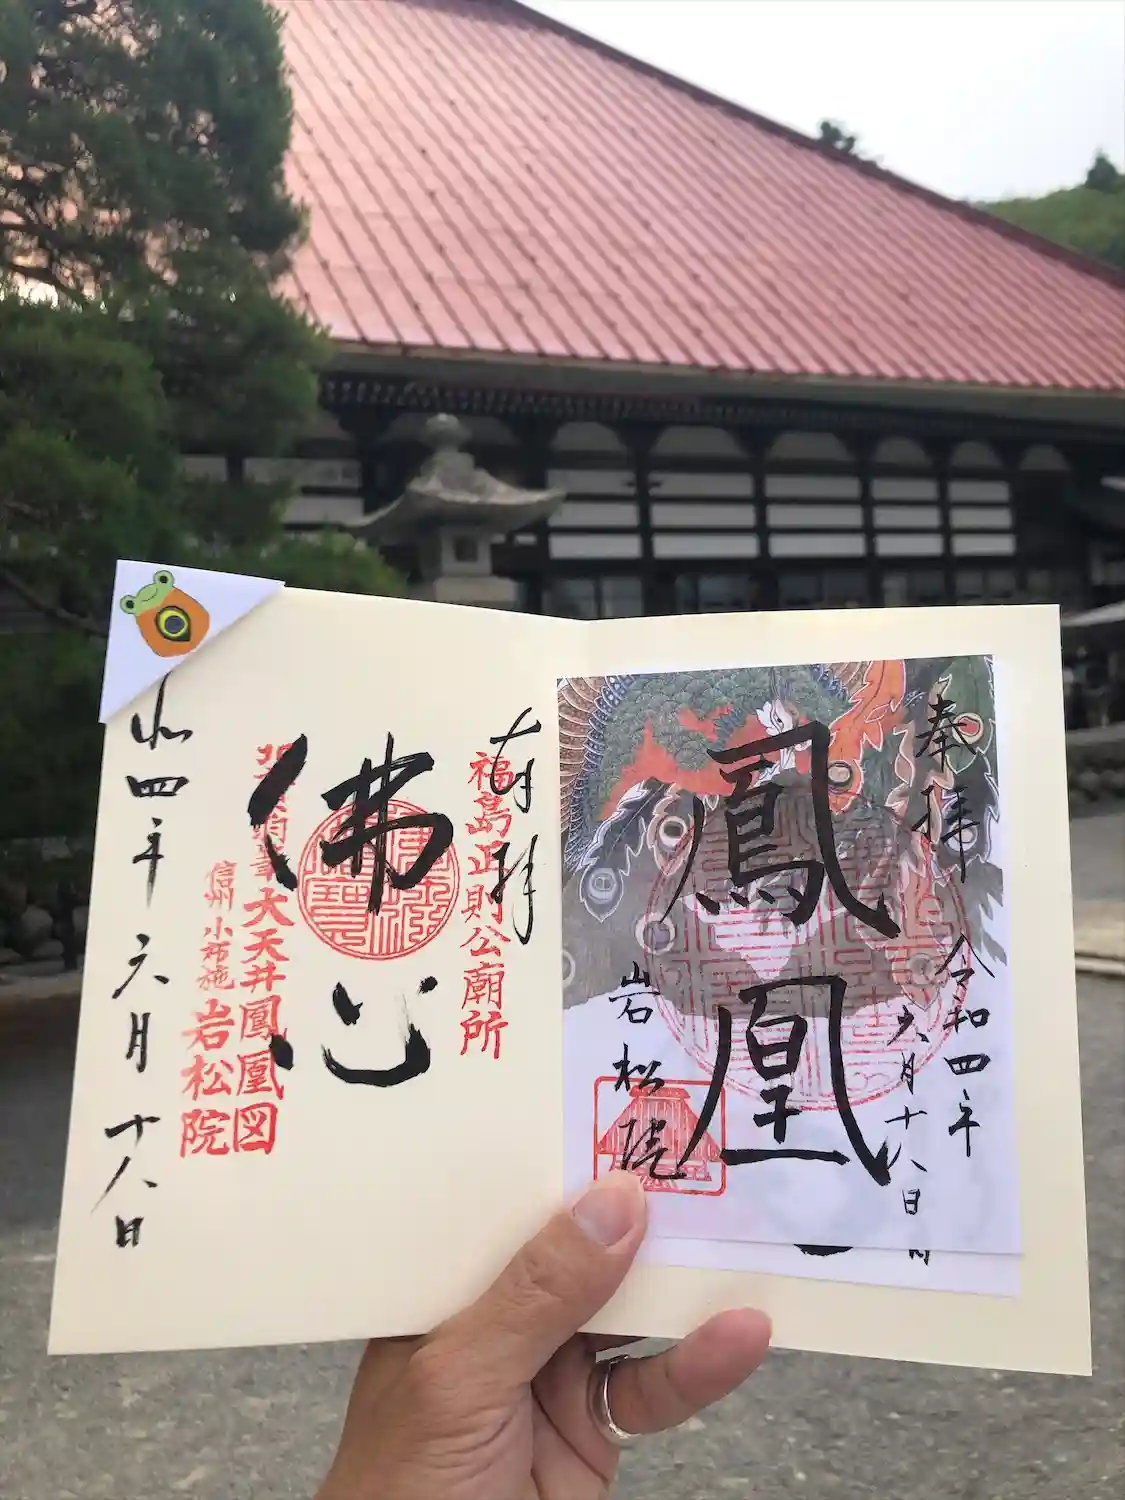 奉拝
令和四年
六月十八日
鳳凰
岩松院
奉拝
福島正則公廟所
佛心
大天井鳳凰図
信州小布施岩松院
和四年六月十八日